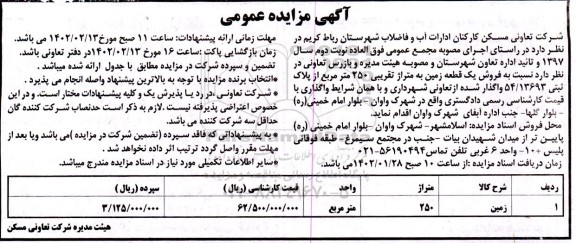 آگهی مزایده عمومی
شرکت تعاونی مسکن کارکنان ادارات آب و فاضلاب شهرستان رباط کریم در
نظر دارد در راستای اجرای مصوبه مجمع عمومی فوق العاده نوبت دوم سال
۱۳۹۷ و تائید اداره تعاون شهرستان و مصوبه هیئت مدیره و بازرس تعاونی در
نظر دارد نسبت به فروش یک قطعه زمین به متراژ تقریبی ۲۵۰ متر مربع از پلاک
ثبتی ۵۴/۱۳۶۹۳ واگذار شده از تعاونی شهرداری و با همان شرایط واگذاری با
قیمت کارشناسی رسمی دادگستری واقع در شهرک واوان - بلوار امام خمینی(ره)
- بلوار گلها- جنب اداره آبفای شهرک واوان اقدام نماید.
محل فروش اسناد مزایده: اسلامشهر- شهرک واوان - بلوار امام خمینی (ره)
پایین تر از میدان شهیدان بیات -جنب در مجتمع سیمرغ- طبقه فوقانی
پلیس ۱۰+- واحد ۶ غربی تلفن تماس۵۶۱۹۰۴۹۴-۰۲۱
زمان دریافت اسناد مزایده :از ساعت ۱۰ صبح ۱۴۰۲/۰۱/۲۸می باشد.
مهلت زمانی ارائه پیشنهادات: ساعت ۱۱ صبح مورخ۱۴۰۲/۰۲/۱۳ می باشد.
زمان بازگشایی پاکت :ساعت ۱۶ مورخ ۱۴۰۲/۰۲/۱۳در دفتر تعاونی باشد.
تضمین و سپرده شرکت در مزایده مطابق با جدول ارائه شده میباشد .
*انتخاب برنده مزایده با توجه به بالاترین پیشنهاد واصله انجام می پذیرد .
* شرکت تعاونی در رد یا پذیرش یک و کلیه پیشنهادات مختار است. و در این
خصوص اعتراضی پذیرفته نیست .لازم به ذکر است حدنصاب شرکت کننده گان
حداقل سه شرکت کننده می باشد.
* به پیشنهاداتی که فاقد سپرده (تضمین شرکت در مزایده )می باشد ویا بعد از
مهلت مقرر واصل گردد ترتیب اثر داده نخواهد شد .
*سایر اطلاعات تکمیلی مورد نیاز در اسناد مزایده مندرج میباشد.
ردیف شرح کالا متراژ واحد قیمت کارشناسی (ریال ) سپرده (ریال )
۱ زمین ۲۵۰ متر مربع ۶۲/۵۰۰/۰۰۰/۰۰۰ ۳/۱۲۵/۰۰۰/۰۰۰
هیئت مدیره شرکت تعاونی مسکن